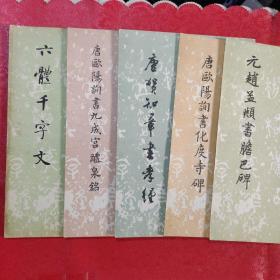 六體千字文
唐歐陽詢書九成宮醴泉銘
唐賀知章書孝經
唐歐陽詢書化度寺碑
元趙孟頫書膽巴碑